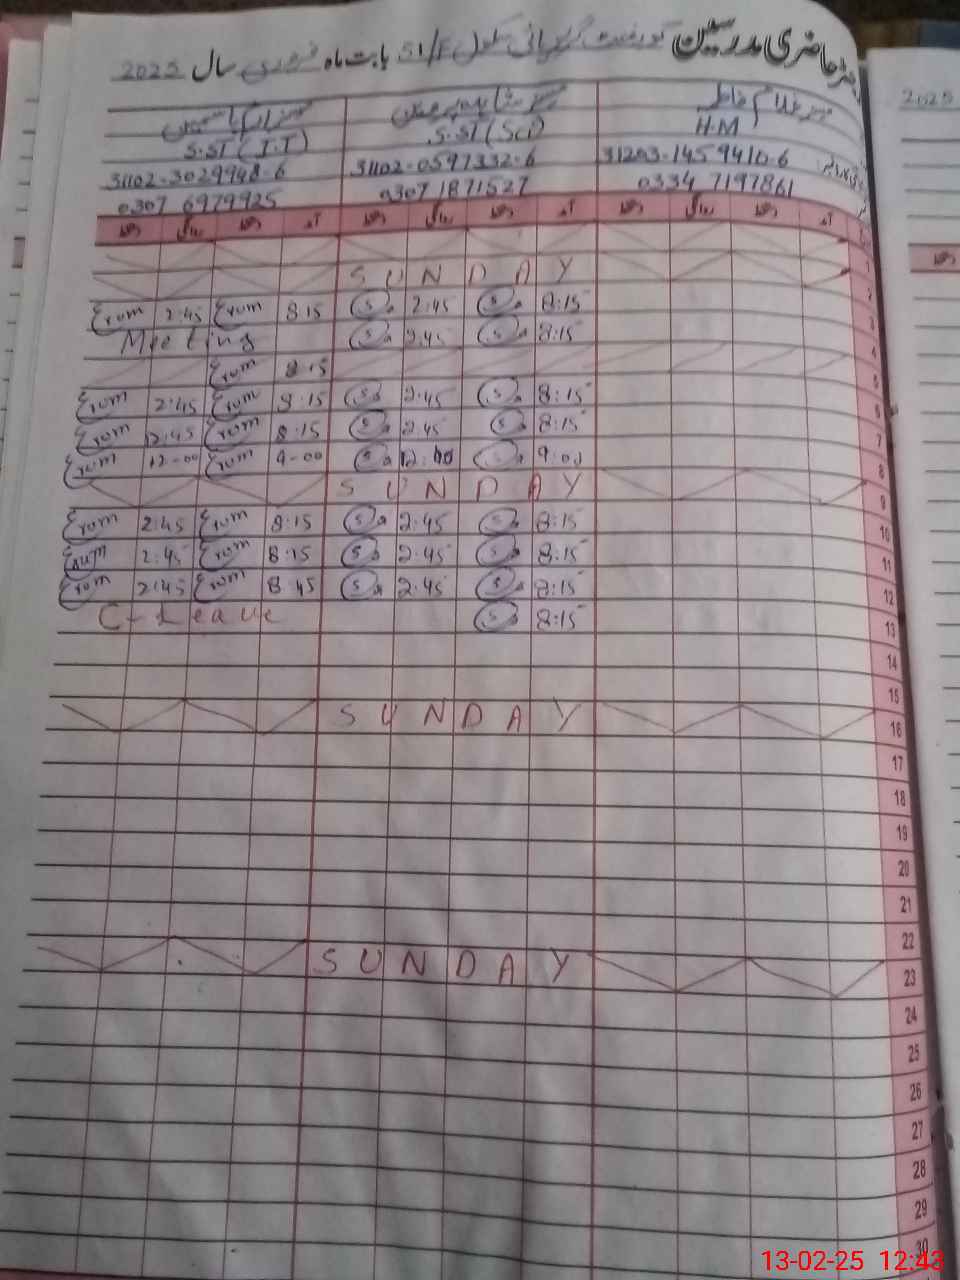 حاضری مدرسین گورنمنٹ گرلز ہائی سکول 51/F بابت ماہ فروری سال 2025
2025
مسز غلام فاطمہ
H.M S.ST (Sci) S.ST (I.T)
31203-1459410-6 31102-0597332-6 31102-3029948-6
0334 7197861 0307 1871527 0307 6979925
آمد دستخط روانگی دستخط آمد دستخط روانگی دستخط آمد دستخط روانگی دستخط
1
SUNDAY 2
Erum 2:45 Erum 8:15 S 2:45 S 8:15 3
Meeting S 2:45 S 8:15 4
Erum 8:15 5
Erum 2:45 Erum 8:15 S 2:45 S 8:15 6
Erum 2:45 Erum 8:15 S 2:45 S 8:15 7
Erum 12-00 Erum 9-00 S S 9:00 8
SUNDAY 9
Erum 2:45 Erum 8:15 S 2:45 S 8:15 10
Erum 2:45 Erum 8:15 S 2:45 S 8:15 11
Erum 2:45 Erum 8:45 S 2:45 S 8:15 12
C-Leave S 8:15 13
14
15
SUNDAY 16
17
18
19
20
21
22
SUNDAY 23
24
25
26
27
28
29
30
13-02-25 12:43